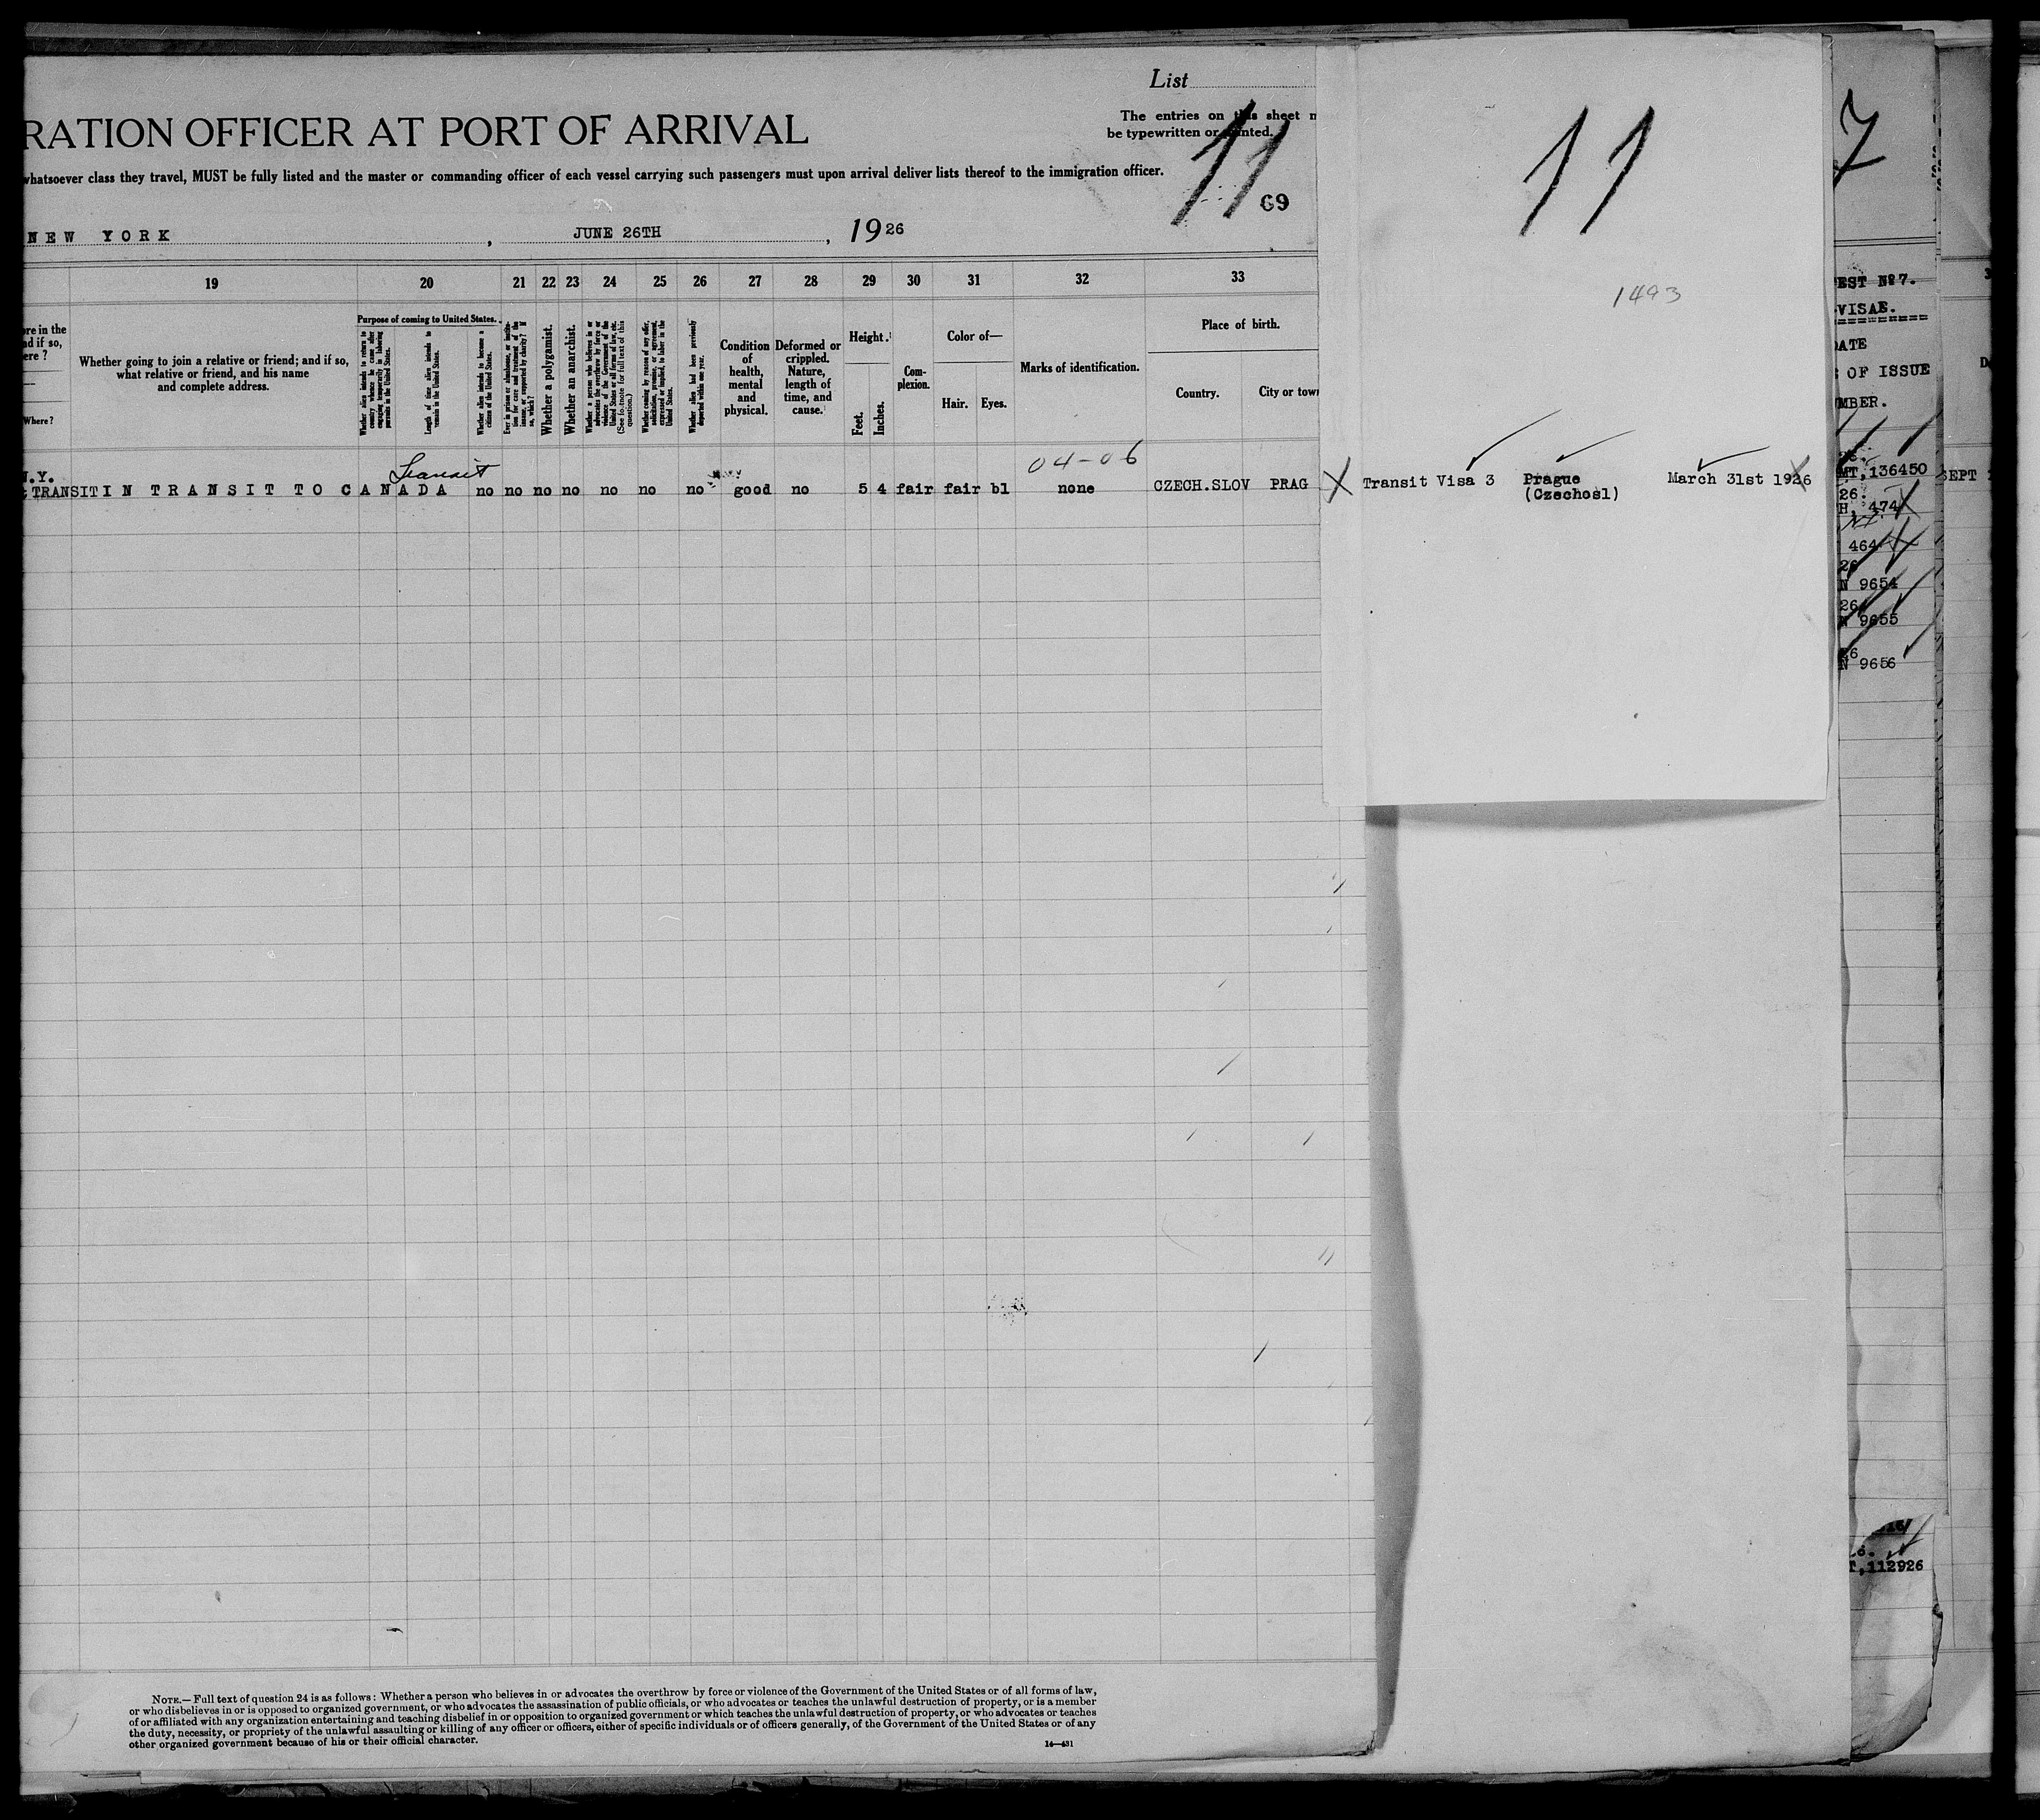 List
RATION OFFICER AT PORT OF ARRIVAL
The entries on this sheet
be typewritten or printed.
11
whatsoever class they travel, MUST be fully listed and the master or commanding officer of each vessel carrying such passengers must upon arrival deliver lists thereof to the immigration officer.
69
NEW YORK, JUNE 26TH, 1926
19 20 21 22 23 24 25 26 27 28 29 30 31 32 33
ore in the
nd if so,
ere ?
Where ?
Whether going to join a relative or friend; and if so,
what relative or friend, and his name
and complete address.
Purpose of coming to United States.
Whether alien intends to return to country whence he came after engaging temporarily in laboring pursuits in the United States.
Length of time alien intends to remain in the United States.
Whether alien intends to become a citizen of the United States.
Ever in prison or almshouse, or institution for care and treatment of the insane, or supported by charity? If so, which?
Whether a polygamist.
Whether an anarchist.
Whether a person who believes in or advocates the overthrow by force or violence of the Government of the United States or all forms of law, etc. (See footnote for full text of this question.)
Whether coming by reason of any offer, solicitation, promise, or agreement, expressed or implied, to labor in the United States.
Whether alien had been previously deported within one year.
Condition of health, mental and physical.
Deformed or crippled. Nature, length of time, and cause.
Height.
Feet.
Inches.
Complexion.
Color of—
Hair. Eyes.
Marks of identification.
Place of birth.
Country. City or town
Transit
04-06
N.Y.
TRANSIT IN TRANSIT TO CANADA no no no no no no no good no 5 4 fair fair bl none CZECH.SLOV PRAG
11
1493
X Transit Visa 3 Prague March 31st 1926
(Czechosl)
7
EST Nº7.
VISAE.
DATE
OF ISSUE
MBER.
26.
MT,136450
26.
H, 474
464
26
N 9654
26
N 9655
26
N 9656
T,112926
SEPT
NOTE.—Full text of question 24 is as follows: Whether a person who believes in or advocates the overthrow by force or violence of the Government of the United States or of all forms of law,
or who disbelieves in or is opposed to organized government, or who advocates the assassination of public officials, or who advocates or teaches the unlawful destruction of property, or is a member
of or affiliated with any organization entertaining and teaching disbelief in or opposition to organized government or which teaches the unlawful destruction of property, or who advocates or teaches
the duty, necessity, or propriety of the unlawful assaulting or killing of any officer or officers, either of specific individuals or of officers generally, of the Government of the United States or of any
other organized government because of his or their official character.
14—431